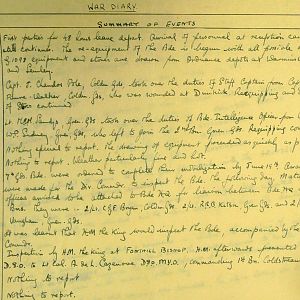 WAR DIARY
SUMMARY OF EVENTS
First parties for 48 hours leave depart. Arrival of personnel at reception
still continues. The re-equipment of the Bde. is begun with all possible
G1098 equipment and stores are drawn from Ordnance depots at Warminster
and
Capt. E. Chandos Pole, Coldm Gds. took over the duties of Staff Captain from Capt
Coldm. Gds, who was wounded at Dunkirk. Re-equipping and
continued
Gren. Gds. took over the duties of Bde. Intelligence Officer from
Gren. Gds., who left to join the 2nd Bn. Gren. Gds. Reequipping
Nothing special to report. The drawing of equipment proceeded as quickly as
Nothing to report. Weather particularly fine and hot.
7th Gds. Bde. were ordered to complete their investigation by June 15th
were made for the Div. Commdr. to inspect the Bde. the following day.
officers arrived to be attached to Bde. HQ for liaison between Bde HQ
Bns. They were :- 2/Lt. C.G.E. Coldm. Gds, 2/Lt. Gren Gds and 2/
Vaughan Gren. Gds.
It was learnt that H.M. the King would inspect the Bde, accompanied by the
Commdr.
Inspection by H.M. the King at FONTHILL BISHOP. H.M. afterwards presented
D.S.O. to Lt. Col. A. de L. Cazenove D.S.O, M.V.O, commanding 1st Bn. Coldstream
Nothing to report
Nothing to report.